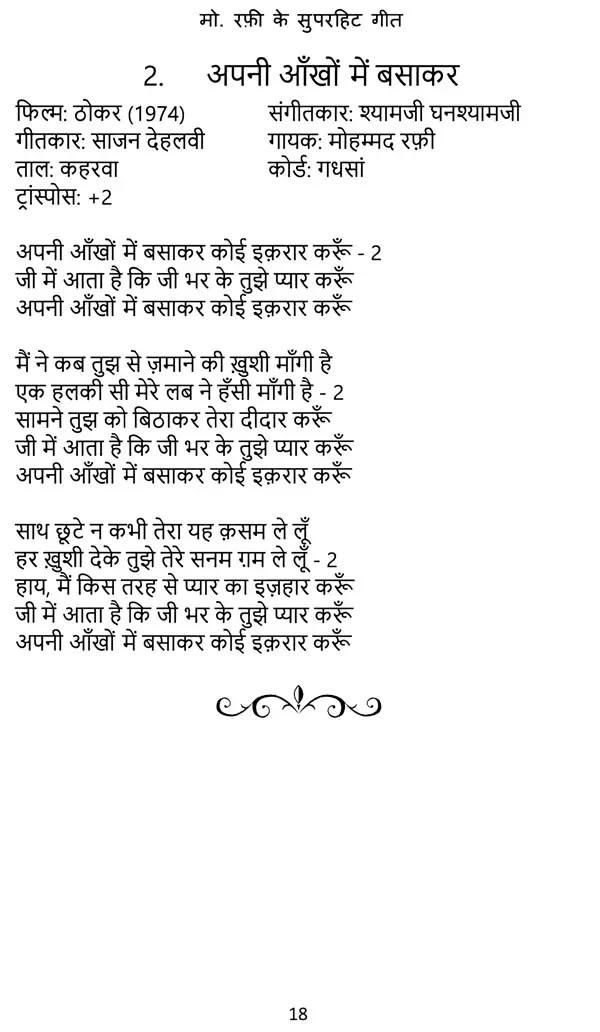 मो. रफ़ी के सुपरहिट गीत
2. अपनी आँखों में बसाकर
फिल्म: ठोकर (1974) संगीतकार: श्यामजी घनश्यामजी
गीतकार: साजन देहलवी गायक: मोहम्मद रफ़ी
ताल: कहरवा कोर्ड: गधसां
ट्रांस्पोस: +2
अपनी आँखों में बसाकर कोई इक़रार करूँ - 2
जी में आता है कि जी भर के तुझे प्यार करूँ
अपनी आँखों में बसाकर कोई इक़रार करूँ
मैं ने कब तुझ से ज़माने की ख़ुशी माँगी है
एक हलकी सी मेरे लब ने हँसी माँगी है - 2
सामने तुझ को बिठाकर तेरा दीदार करूँ
जी में आता है कि जी भर के तुझे प्यार करूँ
अपनी आँखों में बसाकर कोई इक़रार करूँ
साथ छूटे न कभी तेरा यह क़सम ले लूँ
हर ख़ुशी देके तुझे तेरे सनम ग़म ले लूँ - 2
हाय, मैं किस तरह से प्यार का इज़हार करूँ
जी में आता है कि जी भर के तुझे प्यार करूँ
अपनी आँखों में बसाकर कोई इक़रार करूँ
18